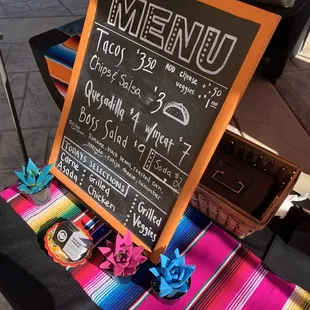 MENU
Tacos $3.50 ADD CHEESE .50
veggies $1.00
Chips & Salsa $3
Quesadilla $4 w/meat $7
Boss Salad $9 Soda $2
TODAYS SELECTIONS
Carne Asada
Grilled Chicken
Grilled Veggies